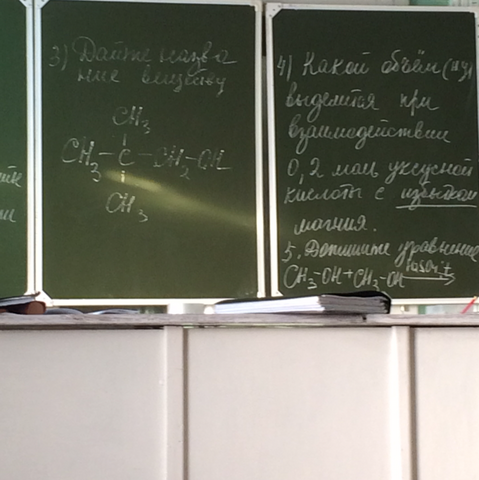 3) Дайте назва
ние веществу
CH3
CH3-C-CH2-OH
CH3
4) Какой объём (н.у)
выделится при
взаимодействии
0,2 моль уксусной
кислоты с избытком
магния.
5. Допишите уравнение
CH3-OH+CH3-OH